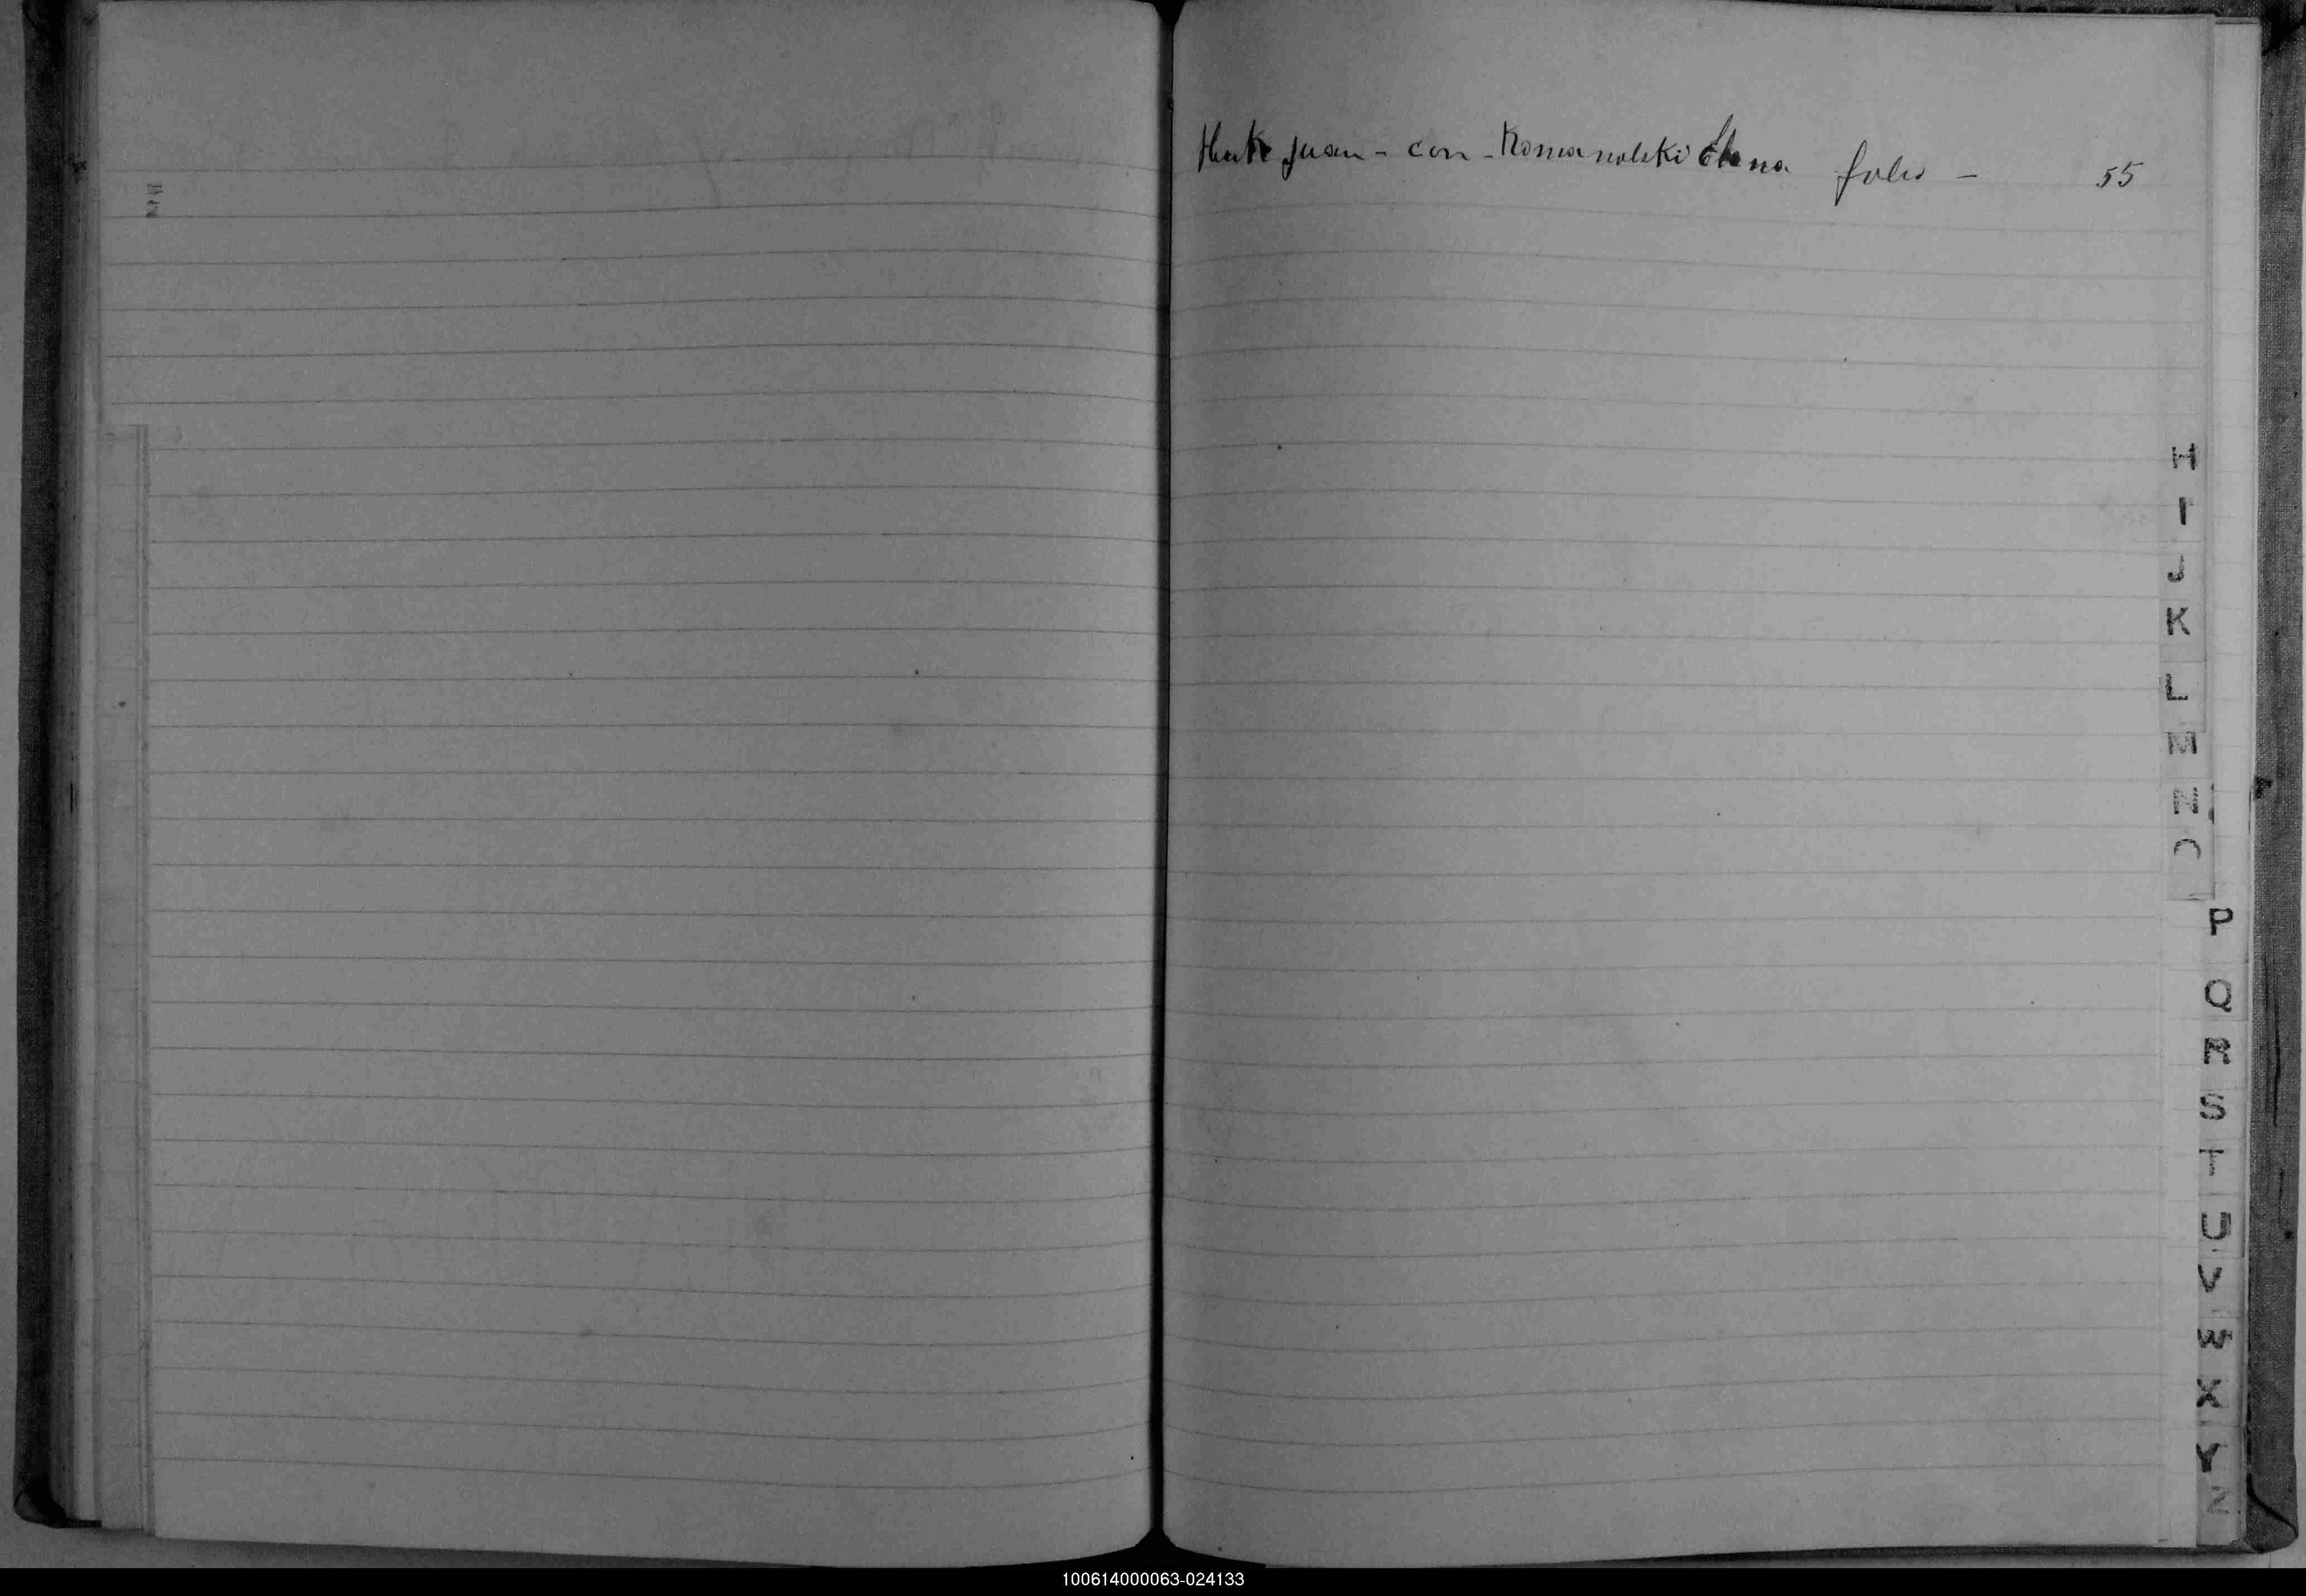 Huk Juan - con - Romanolski Elena folio - 55
H
I
J
K
L
M
N
O
P
Q
R
S
T
U
V
W
X
Y
Z
100614000063-024133